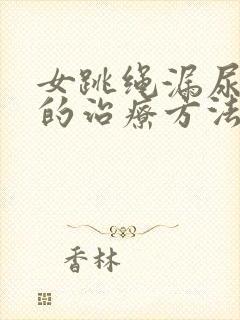 女跳绳漏尿
的治疗方法
香林